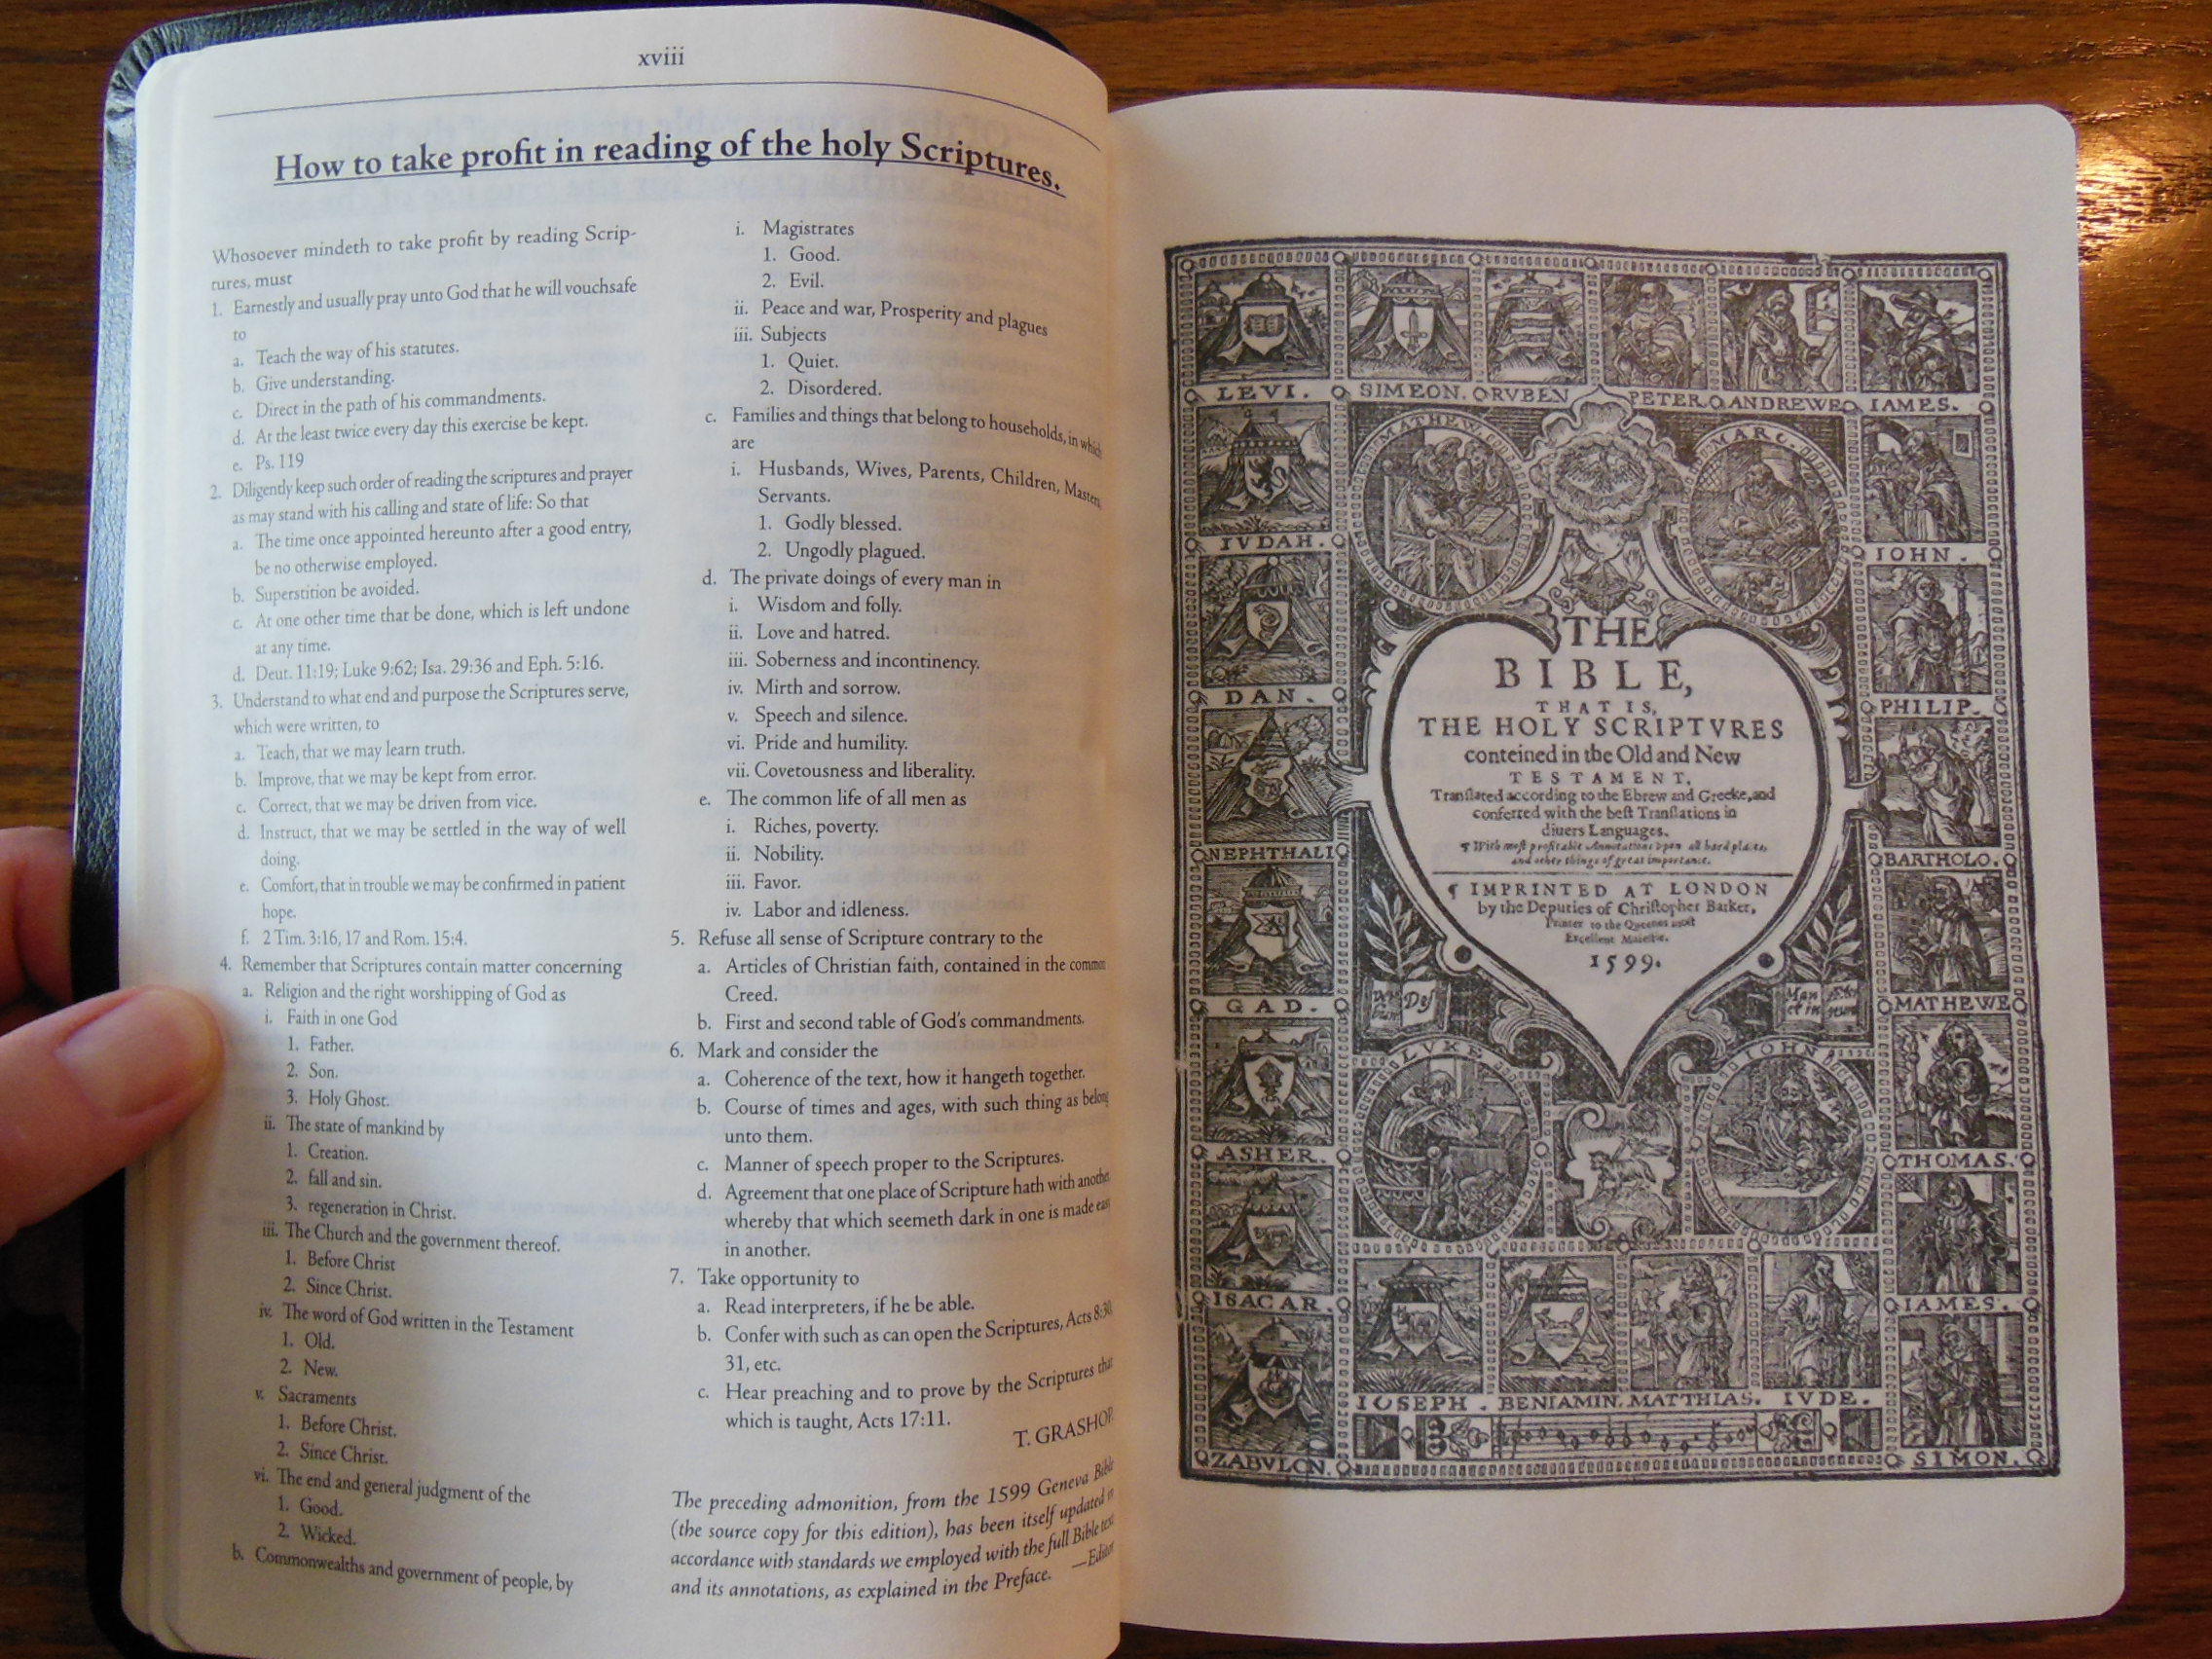 xviii
How to take profit in reading of the holy Scriptures.
Whosoever mindeth to take profit by reading Scrip-
tures, must
1. Earnestly and usually pray unto God that he will vouchsafe
to
a. Teach the way of his statutes.
b. Give understanding.
c. Direct in the path of his commandments.
d. At the least twice every day this exercise be kept.
e. Ps. 119
2. Diligently keep such order of reading the scriptures and prayer
as may stand with his calling and state of life: So that
a. The time once appointed hereunto after a good entry,
be no otherwise employed.
b. Superstition be avoided.
c. At one other time that be done, which is left undone
at any time.
d. Deut. 11:19; Luke 9:62; Isa. 29:36 and Eph. 5:16.
3. Understand to what end and purpose the Scriptures serve,
which were written, to
a. Teach, that we may learn truth.
b. Improve, that we may be kept from error.
c. Correct, that we may be driven from vice.
d. Instruct, that we may be settled in the way of well
doing.
e. Comfort, that in trouble we may be confirmed in patient
hope.
f. 2 Tim. 3:16, 17 and Rom. 15:4.
4. Remember that Scriptures contain matter concerning
a. Religion and the right worshipping of God as
i. Faith in one God
1. Father.
2. Son.
3. Holy Ghost.
ii. The state of mankind by
1. Creation.
2. fall and sin.
3. regeneration in Christ.
iii. The Church and the government thereof.
1. Before Christ
2. Since Christ.
iv. The word of God written in the Testament
1. Old.
2. New.
v. Sacraments
1. Before Christ.
2. Since Christ.
vi. The end and general judgment of the
1. Good.
2. Wicked.
b. Commonwealths and government of people, by
i. Magistrates
1. Good.
2. Evil.
ii. Peace and war, Prosperity and plagues
iii. Subjects
1. Quiet.
2. Disordered.
c. Families and things that belong to households, in which
are
i. Husbands, Wives, Parents, Children, Masters,
Servants.
1. Godly blessed.
2. Ungodly plagued.
d. The private doings of every man in
i. Wisdom and folly.
ii. Love and hatred.
iii. Soberness and incontinency.
iv. Mirth and sorrow.
v. Speech and silence.
vi. Pride and humility.
vii. Covetousness and liberality.
e. The common life of all men as
i. Riches, poverty.
ii. Nobility.
iii. Favor.
iv. Labor and idleness.
5. Refuse all sense of Scripture contrary to the
a. Articles of Christian faith, contained in the common
Creed.
b. First and second table of God's commandments.
6. Mark and consider the
a. Coherence of the text, how it hangeth together.
b. Course of times and ages, with such thing as belong
unto them.
c. Manner of speech proper to the Scriptures.
d. Agreement that one place of Scripture hath with another
whereby that which seemeth dark in one is made easy
in another.
7. Take opportunity to
a. Read interpreters, if he be able.
b. Confer with such as can open the Scriptures, Acts 8:30,
31, etc.
c. Hear preaching and to prove by the Scriptures that
which is taught, Acts 17:11.
T. GRASHOP.
The preceding admonition, from the 1599 Geneva Bible
(the source copy for this edition), has been itself updated in
accordance with standards we employed with the full Bible text
and its annotations, as explained in the Preface. —Editor
LEVI. SIMEON. RVBEN PETER ANDREWE IAMES.
MATHEW MARC.
IVDAH. IOHN.
DAN. PHILIP.
NEPHTHALI BARTHOLO.
GAD. MATHEWE
ASHER. THOMAS.
ISACAR. IAMES.
ZABVLON. SIMON.
THE
BIBLE,
THAT IS,
THE HOLY SCRIPTVRES
conteined in the Old and New
TESTAMENT.
Tranſlated according to the Ebrew and Greeke, and
conferred with the beſt Tranſlations in
diuers Languages.
¶ With moſt profitable Annotations vpon all hard places,
and other things of great importance.
¶ IMPRINTED AT LONDON
by the Deputies of Chriſtopher Barker,
Printer to the Queenes moſt
Excellent Maieſtie.
1599.
LVKE IOHN
IOSEPH. BENIAMIN. MATTHIAS. IVDE.